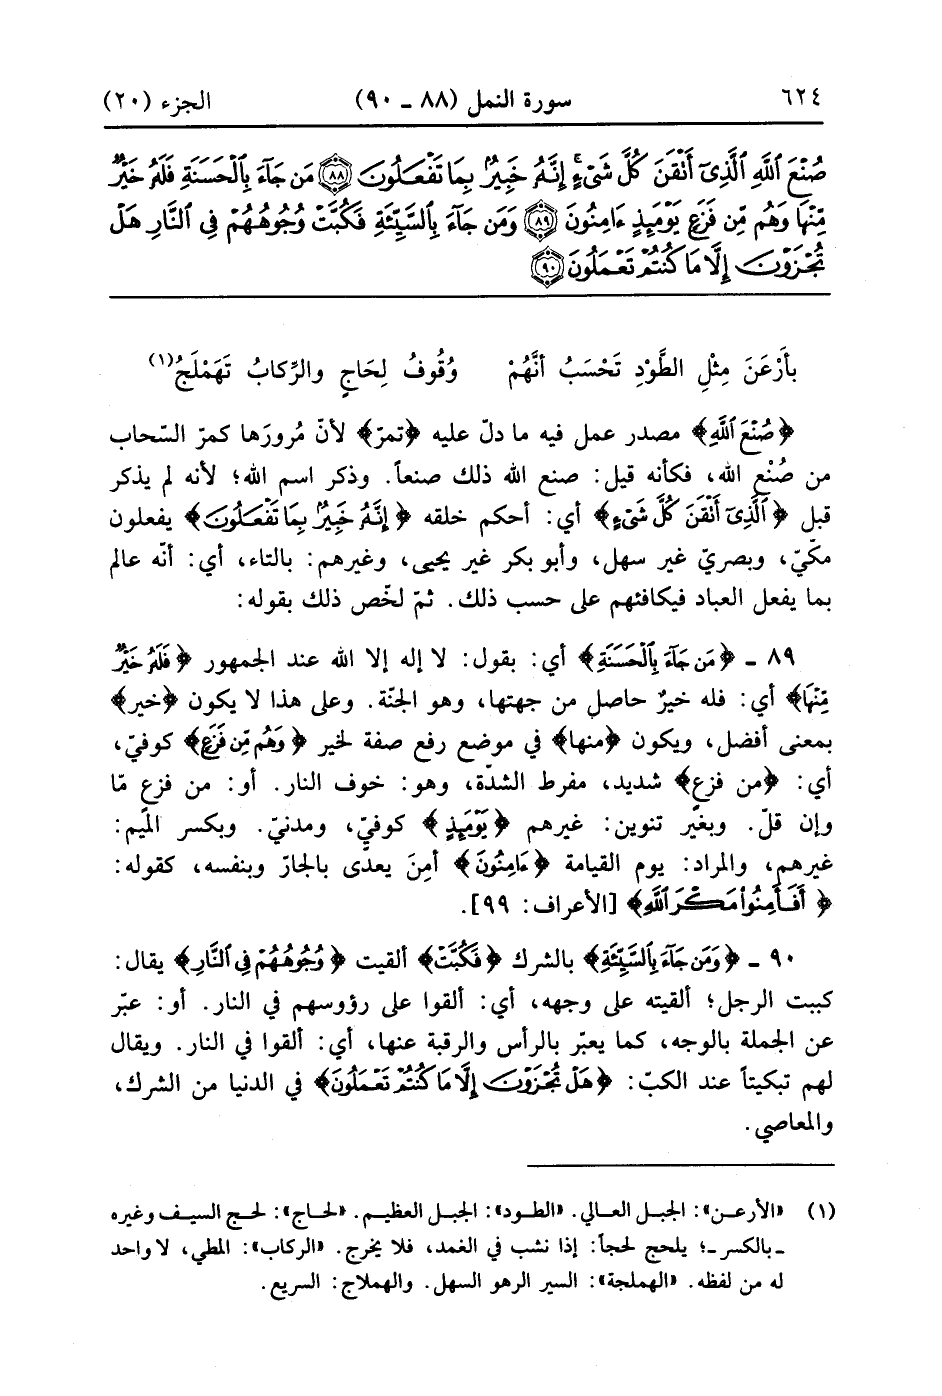 ٦٢٤ سورة النمل (٨٨ ـ ٩٠) الجزء (٢٠)
صُنْعَ ٱللَّهِ ٱلَّذِىٓ أَتْقَنَ كُلَّ شَىْءٍ ۚ إِنَّهُۥ خَبِيرٌۢ بِمَا تَفْعَلُونَ ٨٨ مَن جَآءَ بِٱلْحَسَنَةِ فَلَهُۥ خَيْرٌ
مِّنْهَا وَهُم مِّن فَزَعٍ يَوْمَئِذٍ ءَامِنُونَ ٨٩ وَمَن جَآءَ بِٱلسَّيِّئَةِ فَكُبَّتْ وُجُوهُهُمْ فِى ٱلنَّارِ هَلْ
تُجْزَوْنَ إِلَّا مَا كُنتُمْ تَعْمَلُونَ ٩٠
بأَرْعَنَ مِثْلِ الطَّوْدِ تَحْسَبُ أنَّهُمْ وُقُوفُ لِحَاجٍ والرِّكابُ تَهَمْلَجُ(١)
﴿صُنْعَ ٱللَّهِ﴾ مصدر عمل فيه ما دلّ عليه ﴿تمرّ﴾ لأنّ مُرورَها كمرّ السّحاب
من صُنْعِ الله، فكأنه قيل: صنع الله ذلك صنعاً. وذكر اسم الله؛ لأنه لم يذكر
قبل ﴿ٱلَّذِىٓ أَتْقَنَ كُلَّ شَىْءٍ﴾ أي: أحكم خلقه ﴿إِنَّهُۥ خَبِيرٌۢ بِمَا تَفْعَلُونَ﴾ يفعلون
مكيّ، وبصريّ غير سهل، وأبو بكر غير يحيى، وغيرهم: بالتاء، أي: أنّه عالم
بما يفعل العباد فيكافئهم على حسب ذلك. ثمّ لخّص ذلك بقوله:
٨٩ ـ ﴿مَن جَآءَ بِٱلْحَسَنَةِ﴾ أي: بقول: لا إله إلا الله عند الجمهور ﴿فَلَهُۥ خَيْرٌ
مِّنْهَا﴾ أي: فله خيرٌ حاصل من جهتها، وهو الجنّة. وعلى هذا لا يكون ﴿خير﴾
بمعنى أفضل، ويكون ﴿منها﴾ في موضع رفع صفة لخير ﴿وَهُم مِّن فَزَعٍ﴾ كوفيّ،
أي: ﴿من فزعٍ﴾ شديد، مفرط الشدّة، وهو: خوف النار. أو: من فزعٍ مّا
وإن قلّ. وبغير تنوين: غيرهم ﴿يَوْمَئِذٍ﴾ كوفيّ، ومدنيّ. وبكسر الميم:
غيرهم، والمراد: يوم القيامة ﴿ءَامِنُونَ﴾ أمِنَ يعدى بالجارّ وبنفسه، كقوله:
﴿أَفَأَمِنُوا۟ مَكْرَ ٱللَّهِ﴾ [الأعراف: ٩٩].
٩٠ ـ ﴿وَمَن جَآءَ بِٱلسَّيِّئَةِ﴾ بالشرك ﴿فَكُبَّتْ﴾ ألقيت ﴿وُجُوهُهُمْ فِى ٱلنَّارِ﴾ يقال:
كببت الرجل؛ ألقيته على وجهه، أي: ألقوا على رؤوسهم في النار. أو: عبّر
عن الجملة بالوجه، كما يعبّر بالرأس والرقبة عنها، أي: ألقوا في النار. ويقال
لهم تبكيتاً عند الكبّ: ﴿هَلْ تُجْزَوْنَ إِلَّا مَا كُنتُمْ تَعْمَلُونَ﴾ في الدنيا من الشرك،
والمعاصي.
(١) «الأرعن»: الجبل العالي. «الطود»: الجبل العظيم. «لحاج»: لحج السيف وغيره
ـ بالكسر ـ؛ يلحج لحجاً: إذا نشب في الغمد، فلا يخرج. «الركاب»: المطي، لا واحد
له من لفظه. «الهملجة»: السير الرهو السهل. والهملاج: السريع.